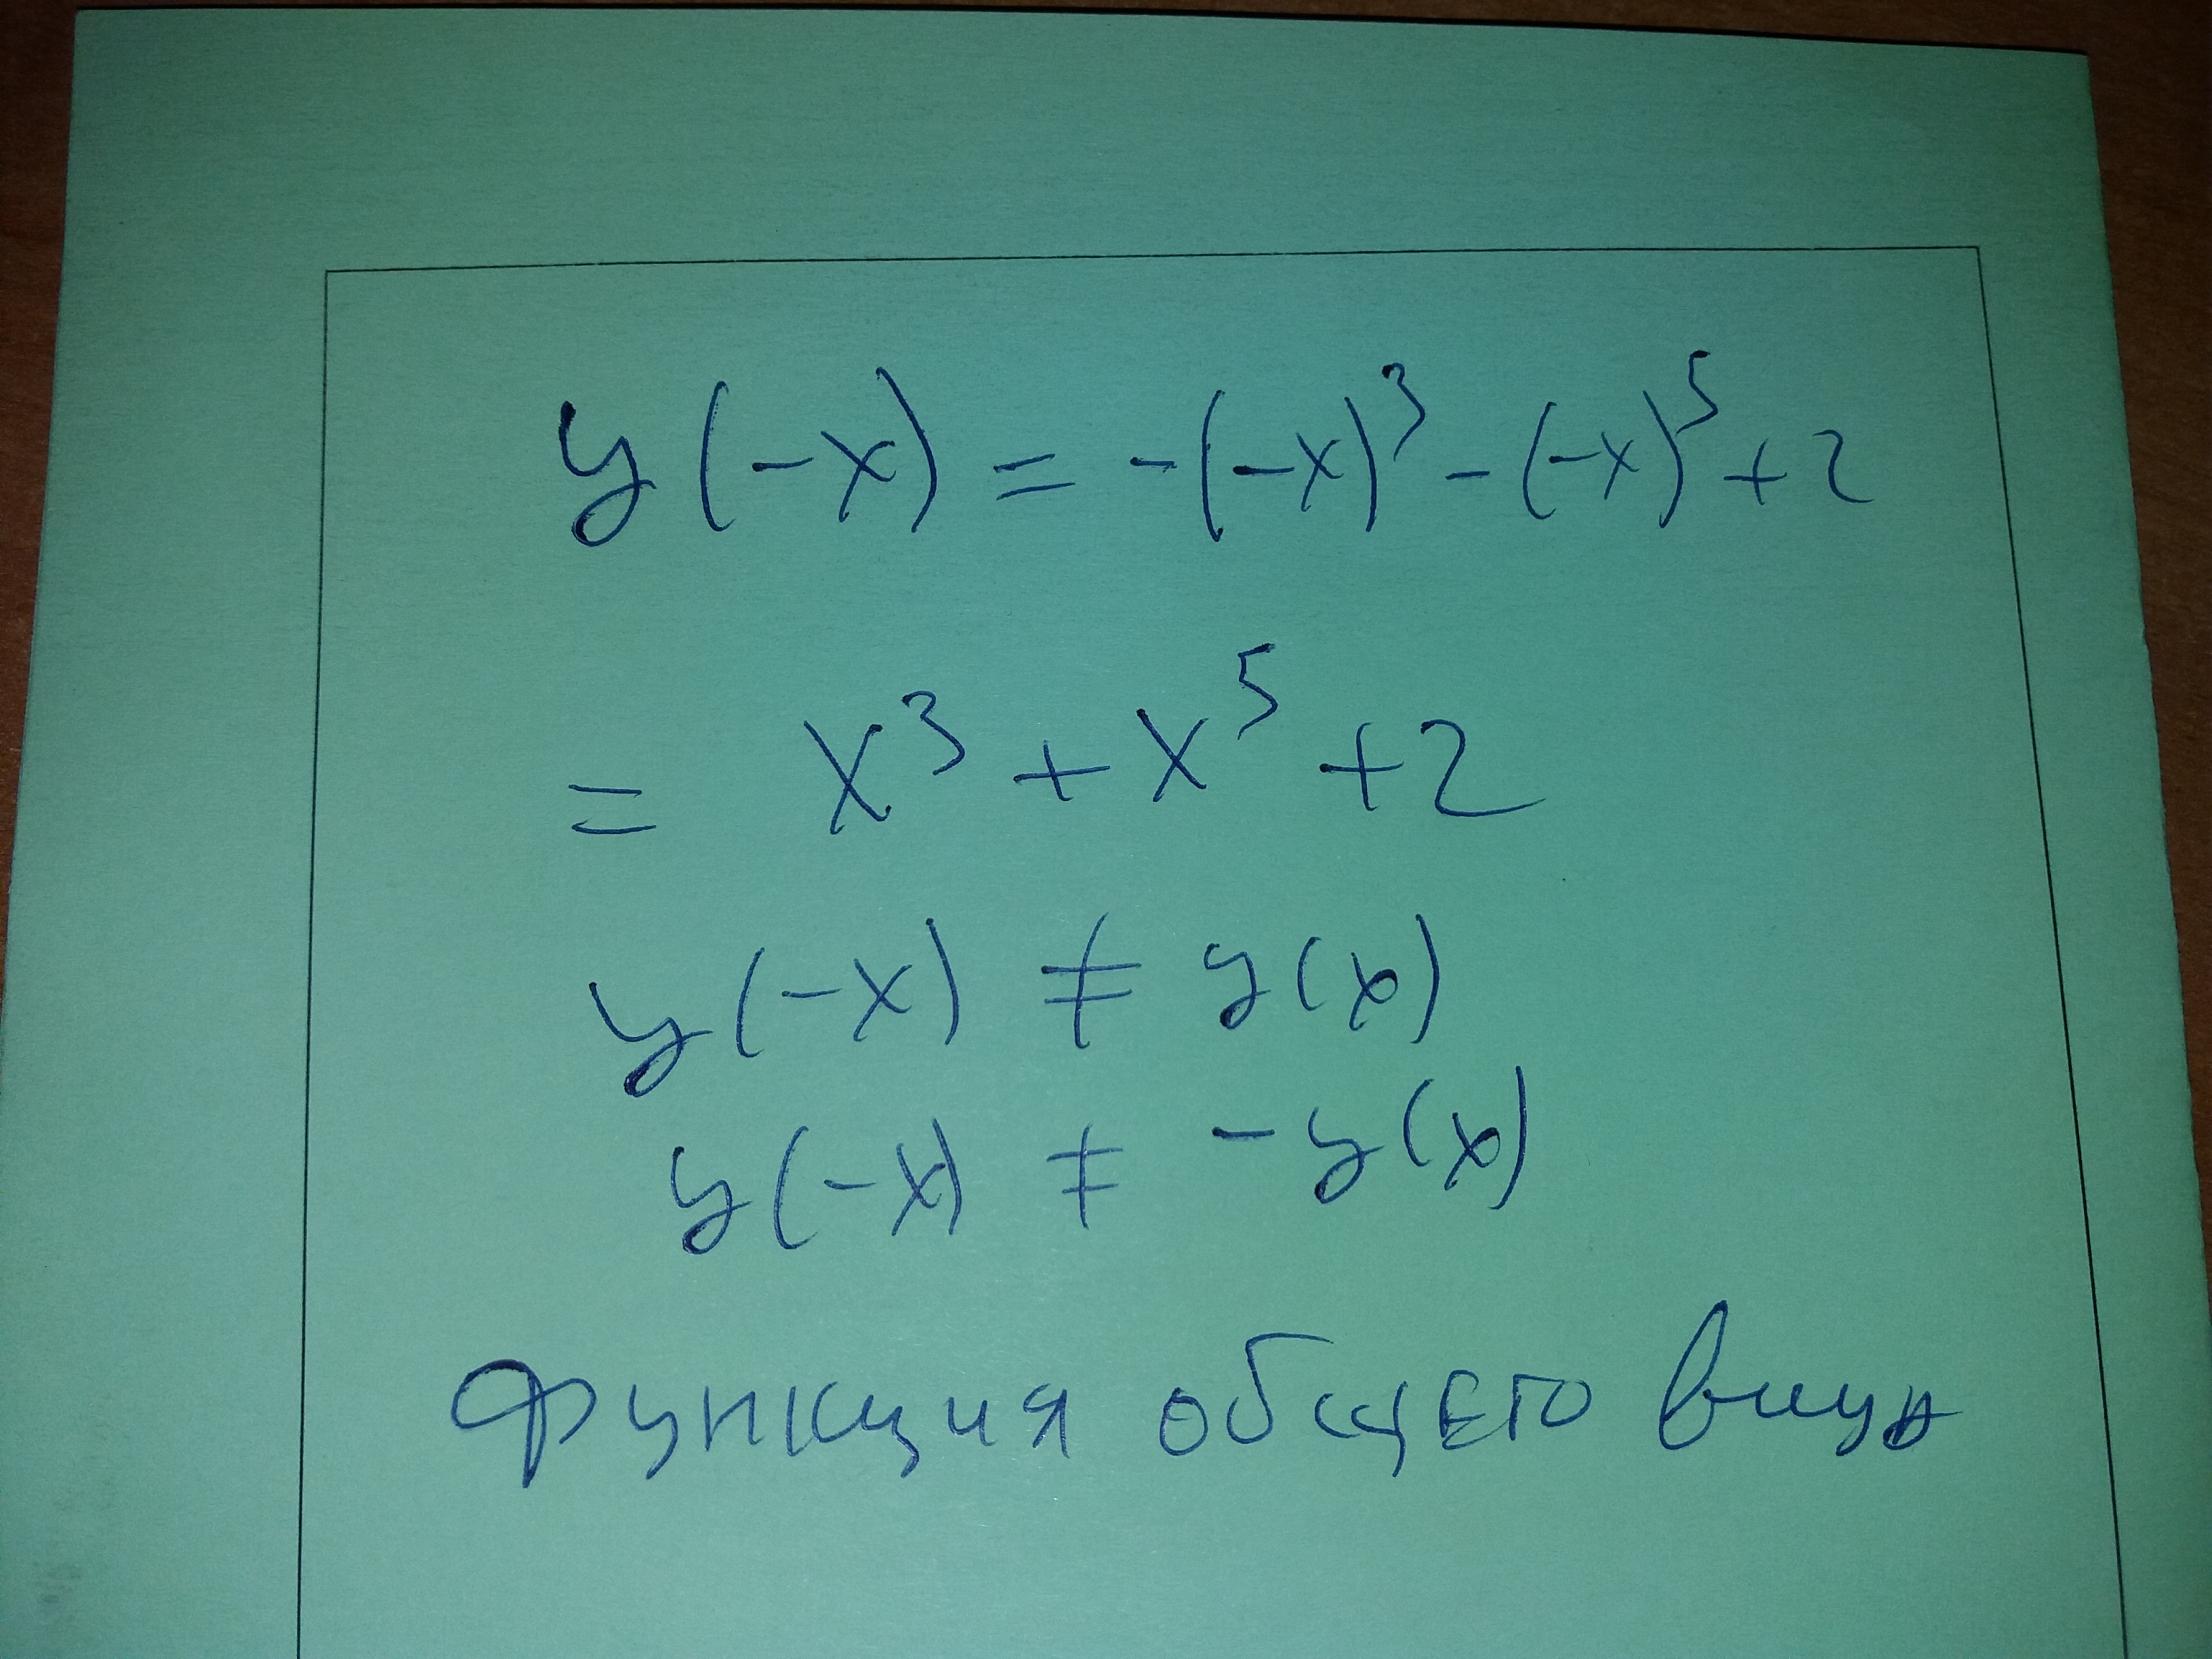 y(-x) = -(-x)³ - (-x)⁵ + 2
= x³ + x⁵ + 2
y(-x) ≠ y(x)
y(-x) ≠ -y(x)
Функция общего вида